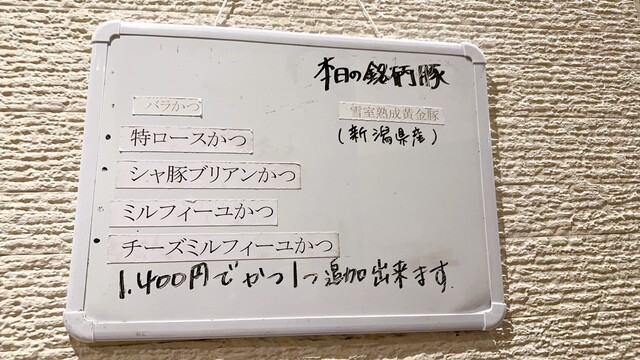 本日の銘柄豚
バラかつ
雪室熟成黄金豚
(新潟県産)
・特ロースかつ
・シャ豚ブリアンかつ
ミルフィーユかつ
・チーズミルフィーユかつ
1.400円でかつ1つ追加出来ます.